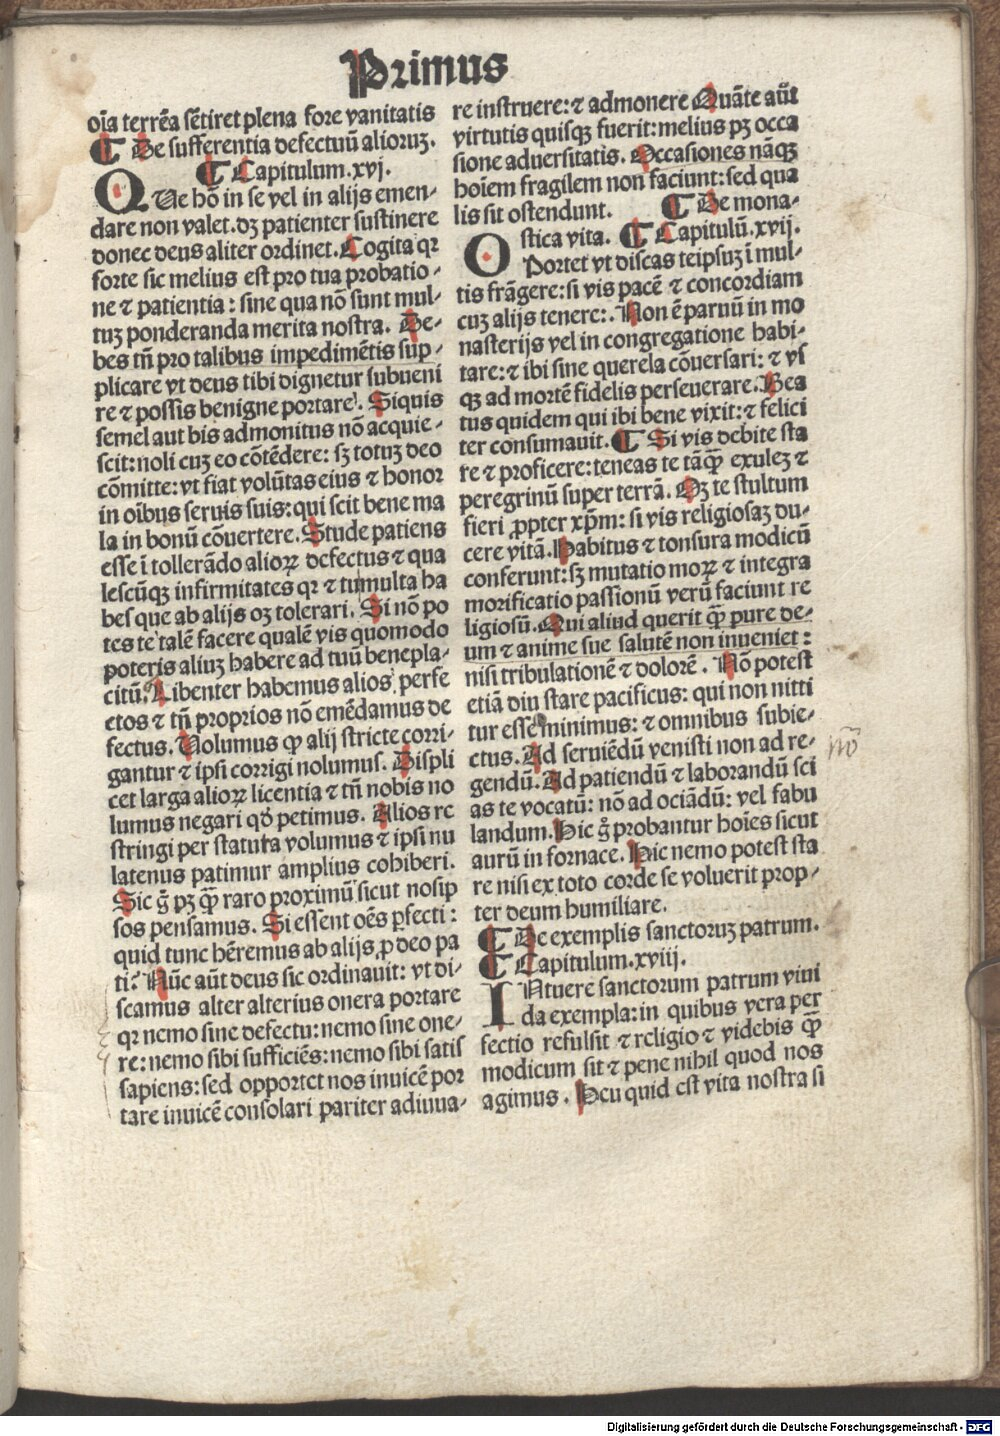 Primus
oīa terrēa sētiret plena fore vanitatis
¶ De sufferentia defectuū aliorꝫ.
¶ Capitulum.xvj.
QUe hō in se vel in alijs emen-
dare non valet.dꝫ patienter sustinere
donec deus aliter ordinet.Cogita qꝛ
forte sic melius est pro tua probatio-
ne ⁊ patientia: sine qua nō sunt mul-
tuꝫ ponderanda merita nostra. De-
bes tn̄ pro talibus impedimētis sup-
plicare vt deus tibi dignetur subueni
re ⁊ possis benigne portare. Siquis
semel aut bis admonitus nō acquie-
scit:noli cuꝫ eo cōtēdere: sꝫ totuꝫ deo
cōmitte:vt fiat volūtas eius ⁊ honor
in oībus seruis suis:qui scit bene ma
la in bonū cōuertere.Stude patiens
esse ī tollerādo alioꝝ defectus ⁊ qua
lescūqꝫ infirmitates qꝛ ⁊ tu multa ha
bes que ab alijs oꝫ tolerari. Si nō po
tes te talē facere qualē vis quomodo
poteris aliuꝫ habere ad tuū benepla-
citū.Libenter habemus alios perfe
ctos ⁊ tn̄ proprios nō emēdamus de
fectus. Uolumus ꝙ alij stricte corri-
gantur ⁊ ipsi corrigi nolumus. Displi
cet larga alioꝝ licentia ⁊ tn̄ nobis no
lumus negari qđ petimus. Alios re
stringi per statuta volumus ⁊ ipsi nu
latenus patimur amplius cohiberi.
Sic g̊ pꝫ ꝙ̄ raro proximū sicut nosip
sos pensamus. Si essent oēs ꝑfecti:
quid tunc hēremus ab alijs ꝓ deo pa
ti? Nūc aūt deus sic ordinauit: vt di-
scamus alter alterius onera portare
qꝛ nemo sine defectu:nemo sine one-
re:nemo sibi sufficiēs:nemo sibi satis
sapiens:sed oportet nos inuicē por
tare inuicē consolari pariter adiuua-
re instruere:⁊ admonere Quāte aūt
virtutis quisqꝫ fuerit:melius pꝫ occa
sione aduersitatis. Occasiones nāqꝫ
hoīem fragilem non faciunt:sed qua
lis sit ostendunt. ¶ De mona-
stica vita. ¶ Capitulū.xvij.
OPortet vt discas teipsuꝫ ī mul-
tis frāgere:si vis pacē ⁊ concordiam
cuꝫ alijs tenere:. Non ē paruū in mo
nasterijs vel in congregatione habi-
tare:⁊ ibi sine querela cōuersari: ⁊ vs
qꝫ ad mortē fidelis perseuerare.Bea
tus quidem qui ibi bene vixit:⁊ felici
ter consumauit.¶ Si vis debite sta
re ⁊ proficere:teneas te tāꝙ̄ exuleꝫ ⁊
peregrinū super terrā. Oꝫ te stultum
fieri ꝓpter xp̄m: si vis religiosaꝫ du-
cere vitā.Habitus ⁊ tonsura modicū
conferunt:sꝫ mutatio moꝝ ⁊ integra
morificatio passionū verū faciunt re
ligiosū.Qui aliud querit ꝙ̄ pure de-
um ⁊ anime sue salutē non inueniet:
nisi tribulationē ⁊ dolorē. Nō potest
etiā diu stare pacificus: qui non nitti
tur esse minimus: ⁊ omnibus subie-
ctus.Ad seruiēdū venisti non ad re-
gendū.Ad patiendū ⁊ laborandū sci
as te vocatū: nō ad ociādū: vel fabu
landum.Hic g̊ probantur hoīes sicut
aurū in fornace.Hic nemo potest sta
re nisi ex toto corde se voluerit prop-
ter deum humiliare.
¶ De exemplis sanctoruꝫ patrum.
¶ Capitulum.xviij.
INtuere sanctorum patrum viui
da exempla:in quibus vera per
fectio refulsit ⁊ religio ⁊ videbis ꝙ̄
modicum sit ⁊ pene nihil quod nos
agimus. Heu quid est vita nostra si
nō
Digitalisierung gefördert durch die Deutsche Forschungsgemeinschaft - DFG